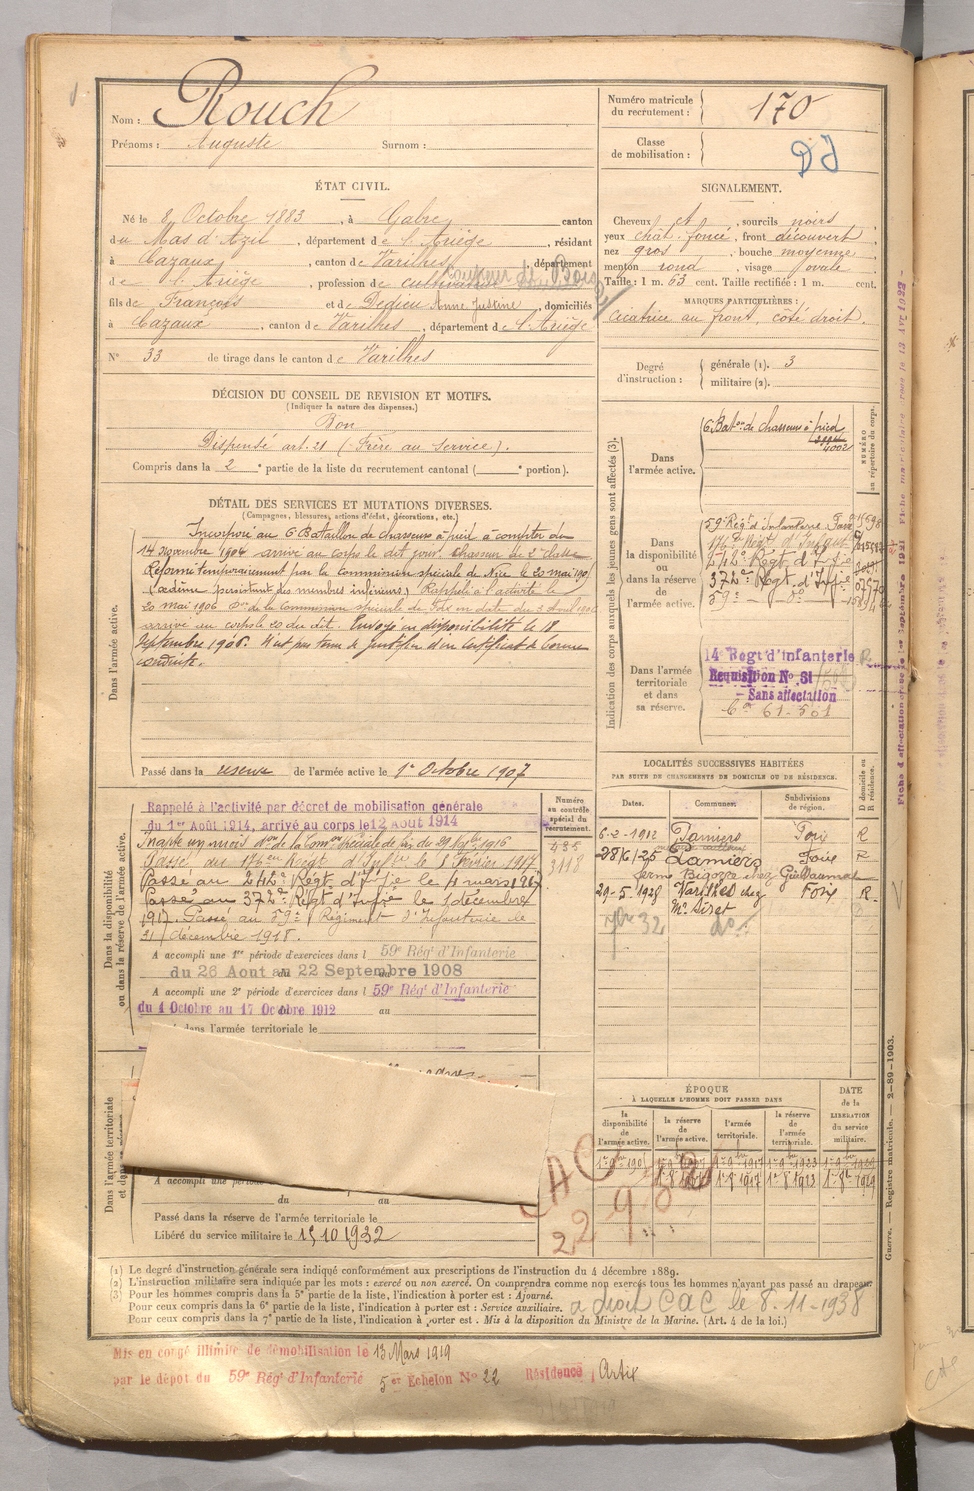 Nom : Rouch
Prénoms : Auguste Surnom :
Numéro matricule du recrutement : 170
Classe de mobilisation :
ÉTAT CIVIL.
Né le 8 Octobre 1883, à Gabre, canton
du Mas d'Azil, département de l'Ariège, résidant
à Cazaux, canton de Varilhes, département
de l'Ariège, profession de cultivateur
Coupeur de Bois
fils de François et de Dedieu Anne Justine, domiciliés
à Cazaux, canton de Varilhes, département de l'Ariège
N° 33 de tirage dans le canton de Varilhes
SIGNALEMENT.
Cheveux et sourcils noirs
yeux chât. foncé, front découvert
nez gros, bouche moyenne
menton rond, visage ovale
Taille : 1 m. 63 cent. Taille rectifiée : 1 m. cent.
MARQUES PARTICULIÈRES :
Cicatrice au front, côté droit.
Degré d'instruction :
générale (1). 3
militaire (2).
DÉCISION DU CONSEIL DE REVISION ET MOTIFS.
(Indiquer la nature des dispenses.)
Bon
Dispensé art. 21 (Frère au Service).
Compris dans la 2e partie de la liste du recrutement cantonal ( e portion).
DÉTAIL DES SERVICES ET MUTATIONS DIVERSES.
(Campagnes, blessures, actions d'éclat, décorations, etc.)
Dans l'armée active.
Incorporé au 6e Bataillon de chasseurs à pied à compter du
14 novembre 1904 arrivé au corps le dit jour. Chasseur de 2e classe
Réformé temporairement par la commission spéciale de Nice le 20 mai 1905
(œdème persistant des membres inférieurs) Rappelé à l'activité le
20 mai 1906 Don de la Commission spéciale de Foix en date du 3 avril 1906
arrivé au corps le 20 du dit. Envoyé en disponibilité le 18
Septembre 1906. N'est pas tenu de justifier d'un certificat de bonne
conduite.
Passé dans la reserve de l'armée active le 1er Octobre 1907
Indication des corps auxquels les jeunes gens sont affectés (3).
NUMÉRO au répertoire du corps.
Dans l'armée active.
6 Baton de chasseurs à pied
4002
Dans la disponibilité ou dans la réserve de l'armée active.
59e Régt d'Infanterie Foix
176e Régt d'Infant
242e Régt d'Ifie
372e Régt d'Infie
59e - do -
Dans l'armée territoriale et dans sa réserve.
14e Régt d'infanterie
Requisition No 31
Sans affectation
LOCALITÉS SUCCESSIVES HABITÉES
PAR SUITE DU CHANGEMENTS DE DOMICILE OU DE RÉSIDENCE.
Dates. Communes. Subdivisions de région. D domicile ou R résidence.
6-2-1912 Pamiers Foix R
28/6/25 Pamiers Foix R
29-5-1928 Varilhes chez Foix R.
Mr Siret
Dans la disponibilité ou dans la réserve de l'armée active.
Numéro au contrôle spécial du recrutement.
435
3118
Rappelé à l'activité par décret de mobilisation générale
du 1er Août 1914, arrivé au corps le 12 Août 1914
Inapte un mois Don de la Comon spéciale de Foix du 29 Xbre 1916
Passé au 176eme Régt d'Inftie le 8 Février 1917
Passé au 242e Régt d'Ifie le 4 mars 1917
Passé au 372e Régt d'Infie le 1 décembre
1917. Passé au 59e Régiment d'Infanterie le
21 décembre 1918.
A accompli une 1re période d'exercices dans l 59e Régt d'Infanterie
du 26 Aout au 22 Septembre 1908
A accompli une 2e période d'exercices dans l 59e Régt d'Infanterie
du 1 Octobre au 17 Octobre 1912 au
dans l'armée territoriale le
Dans l'armée territoriale
A accompli une période
du au
Passé dans la réserve de l'armée territoriale le
Libéré du service militaire le 15.10.1932
ÉPOQUE
À LAQUELLE L'HOMME DOIT PASSER DANS
la disponibilité de l'armée active.
la réserve de l'armée active.
l'armée territoriale.
la réserve de l'armée territoriale.
DATE de la LIBÉRATION du service militaire.
(1) Le degré d'instruction générale sera indiqué conformément aux prescriptions de l'instruction du 4 décembre 1889.
(2) L'instruction militaire sera indiquée par les mots : exercé ou non exercé. On comprendra comme non exercés tous les hommes n'ayant pas passé au drapeau.
(3) Pour les hommes compris dans la 5e partie de la liste, l'indication à porter est : Ajourné.
Pour ceux compris dans la 6e partie de la liste, l'indication à porter est : Service auxiliaire.
Pour ceux compris dans la 7e partie de la liste, l'indication à porter est : Mis à la disposition du Ministre de la Marine. (Art. 4 de la loi.)
a droit CAC le 8-11-1938
Mis en congé illimité de démobilisation le 13 Mars 1919
par le dépôt du 59e Régt d'Infanterie 5er Echelon No 22 Résidence Artix
Guerre. — Registre matricule. — 2-89-1903.